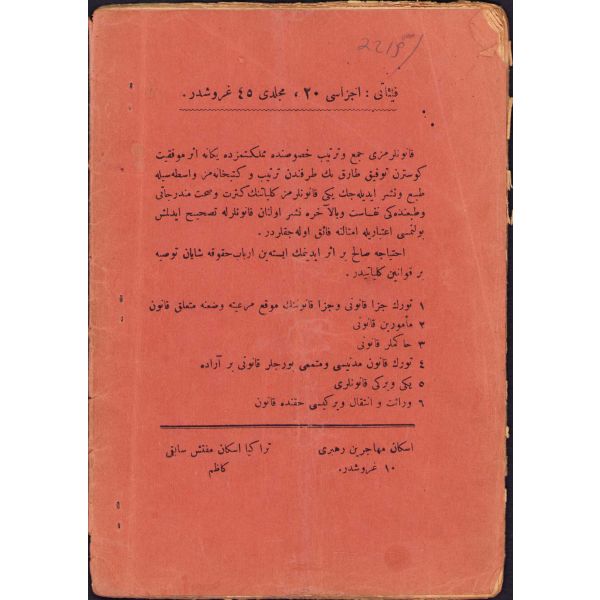 2219
فیئاتی : اجزاسی ۲۰ ، مجلدی ٤٥ غروشدر .
قانونلرمزی جمع و ترتیب خصوصنده مملکتمزده یگانه اثر موفقیت
کوسترن توفیق طارق بك طرفندن ترتیب و کتبخانه‌مز واسطه‌سیله
طبع و نشر ایدیله‌جك یکی قانونلرمز کلیاتنك کثرت و صحت مندرجاتی
و طبعنده‌کی نفاست و بالآخره نشر اولنان قانونلرله تصحیح ایدلش
بولنمسی اعتباریله امثالنه فائق اوله‌جقلردر .
احتیاجه صالح بر اثر ایدینمك ایسته‌ین ارباب حقوقه شایان توصیه
بر قوانین کلیاتیدر .
۱ تورك جزا قانونی و جزا قانوننك موقع مرعیته وضعنه متعلق قانون
۲ مأمورین قانونی
۳ حاکملر قانونی
٤ تورك قانون مدنیسی و متممی بورجلر قانونی بر آراده
٥ یکی ویرکی قانونلری
٦ وراثت و انتقال ویرکیسی حقنده قانون
اسکان مهاجرین رهبری
۱۰ غروشدر.
تراکیا اسکان مفتش سابقی
کاظم